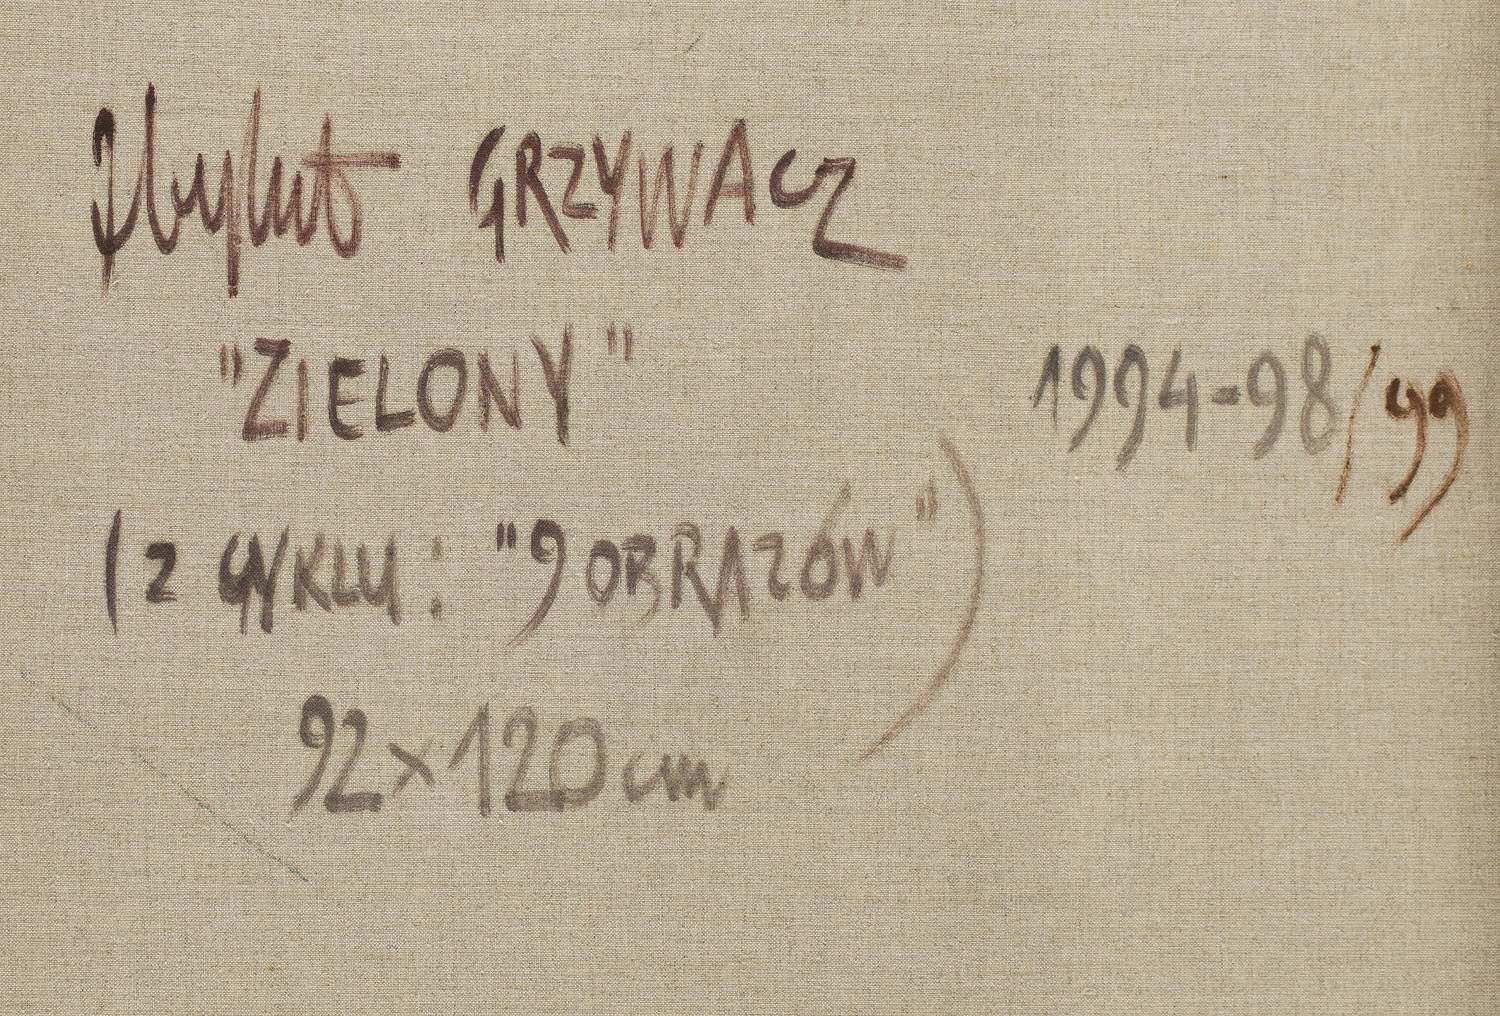 Zbylut GRZYWACZ
"ZIELONY" 1994-98/99
(z CYKLU: "9 OBRAZÓW")
92×120 cm